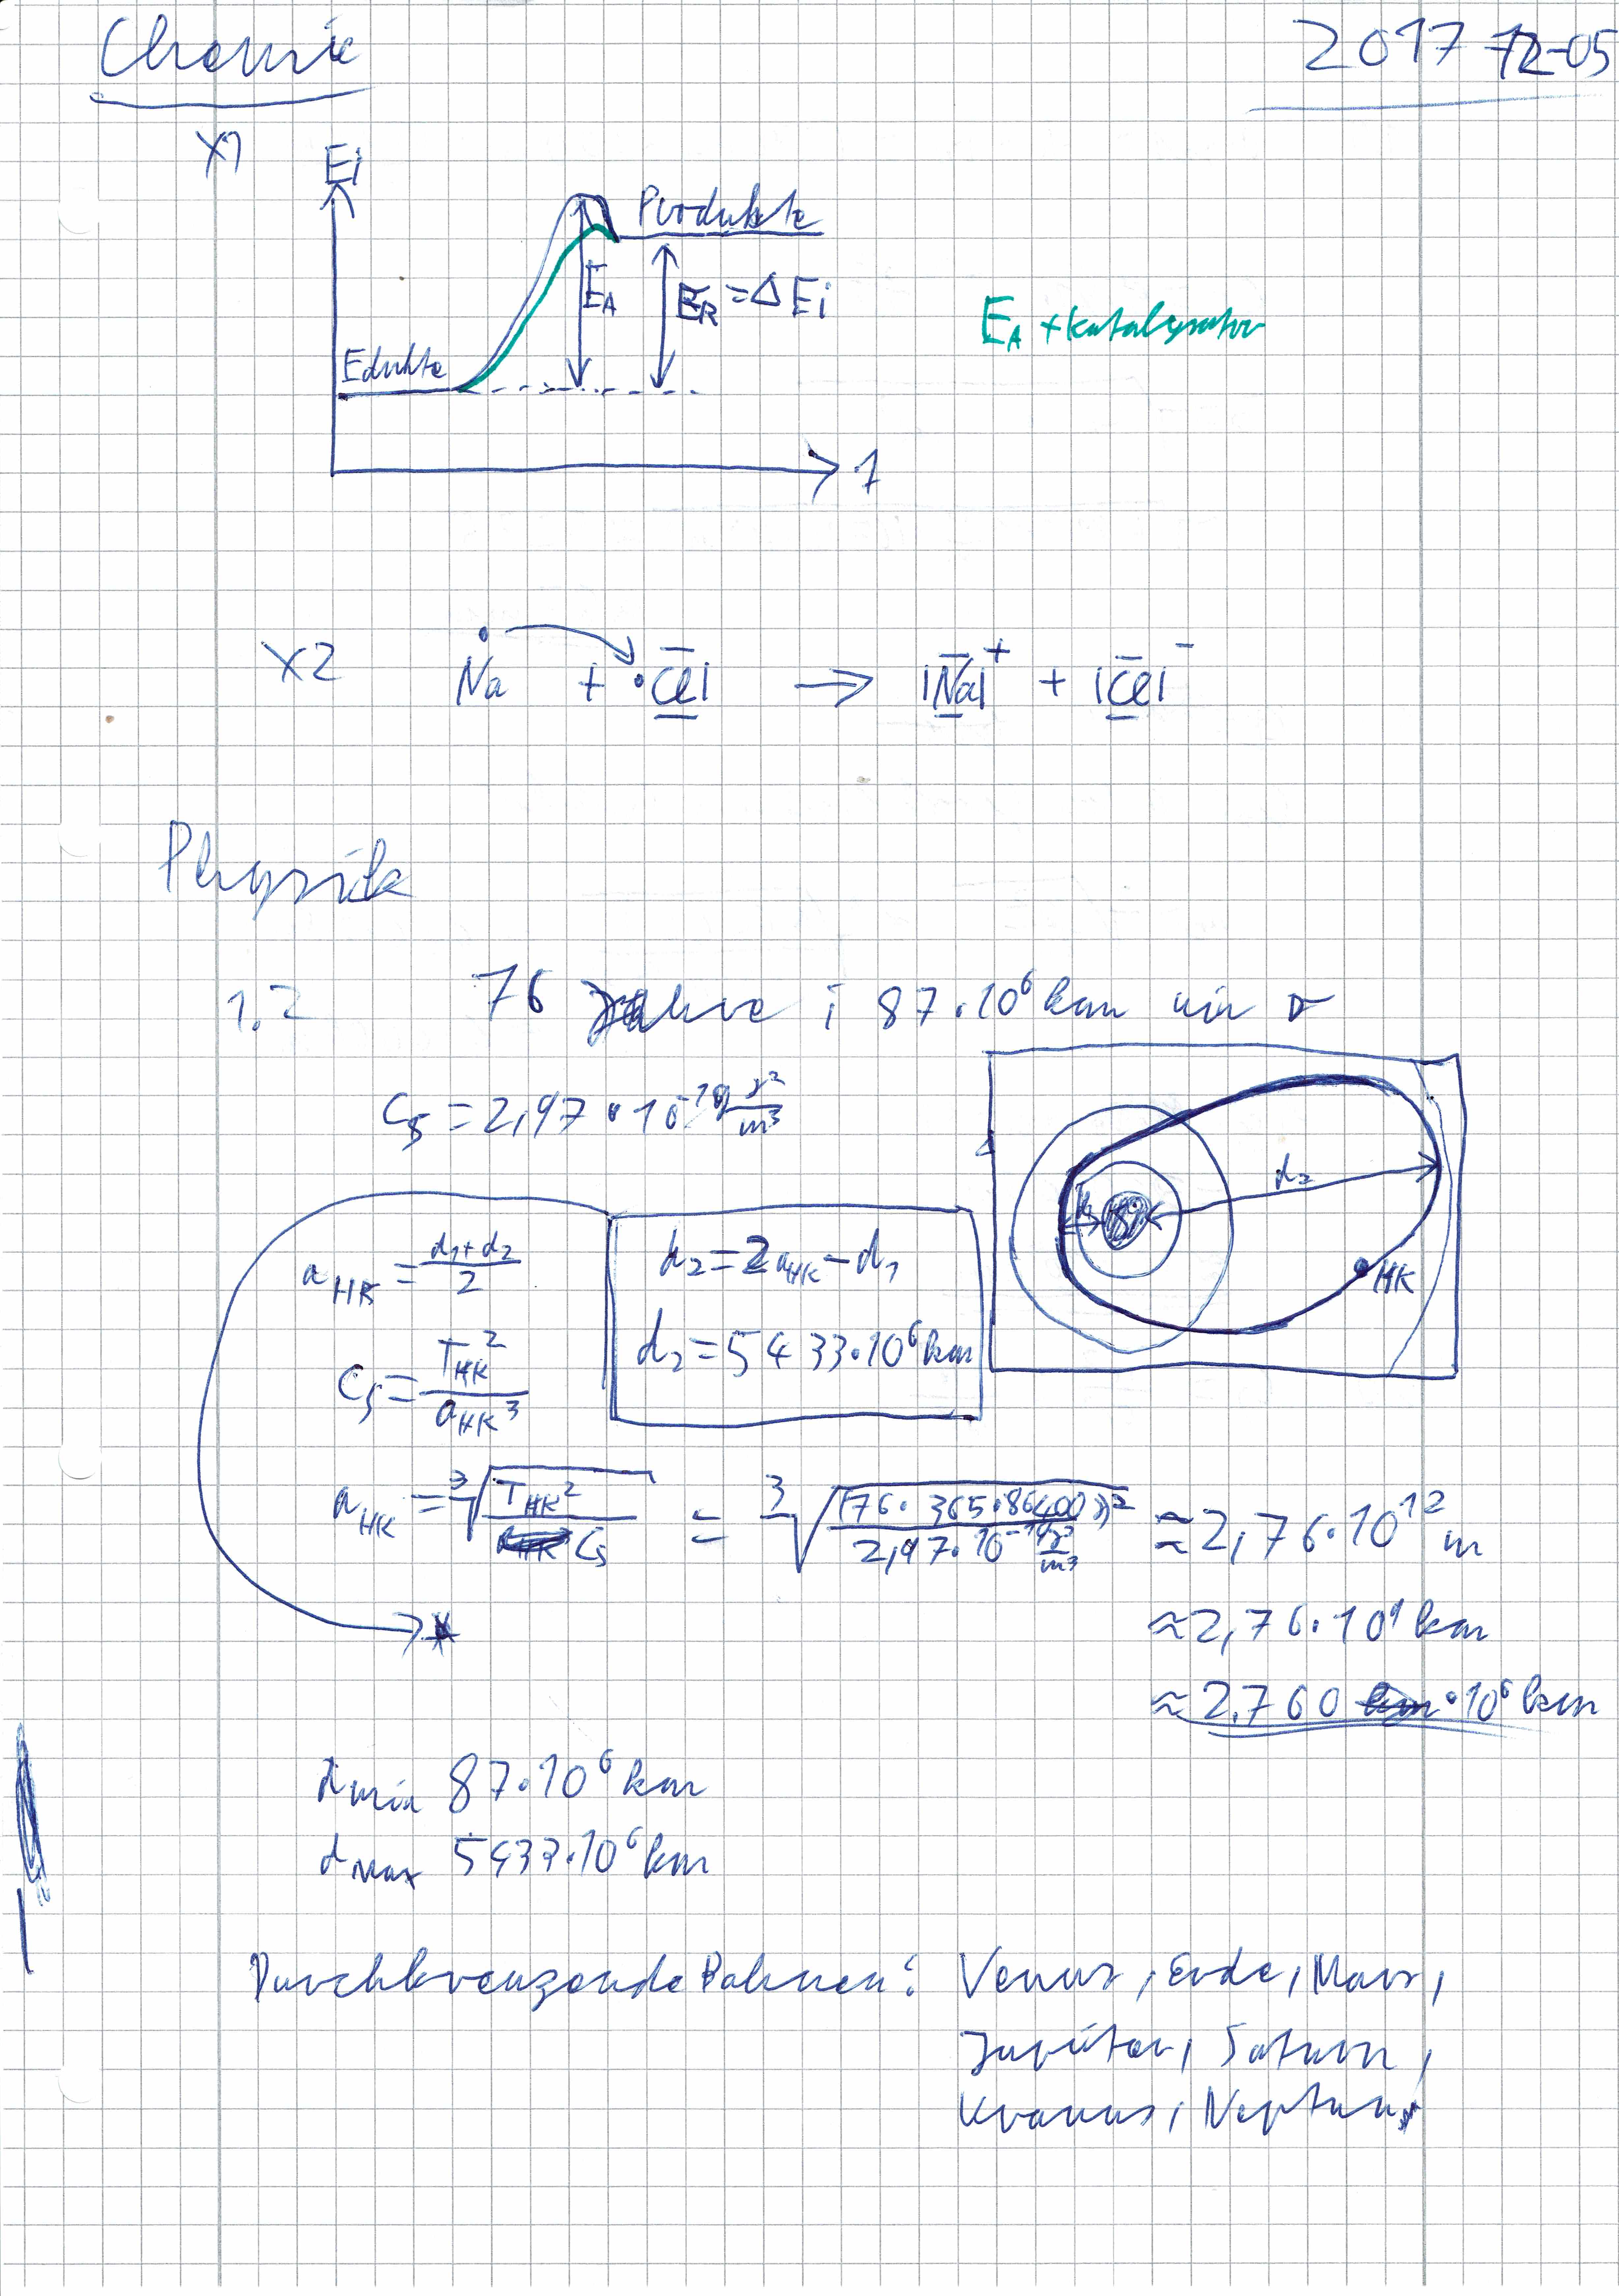 Chemie 2017-12-05
X1
Ei
Produkte
EA ER = Δ Ei
EA + Katalysator
Edukte
X2 Na + ·Cl| → |Na|⁺ + |Cl|⁻
Physik
1.2 76 Jahre ; 87·10⁶ km
C_S = 2,97 · 10⁻¹⁹ s²/m³
d₂
HK
a_HK = (d₁+d₂)/2
d₂ = 2a_HK − d₁
d₂ = 5433·10⁶ km
C_S = T_HK²/a_HK³
a_HK = ³√(T_HK²/C_S) = ³√((76·365·86400 s)²/(2,97·10⁻¹⁹ s²/m³)) ≈ 2,76·10¹² m
≈ 2,76·10⁹ km
≈ 2.760 ·10⁶ km
d_min 87·10⁶ km
d_max 5433·10⁶ km
Durchkreuzende Bahnen: Venus, Erde, Mars,
Jupiter, Saturn,
Uranus, Neptun